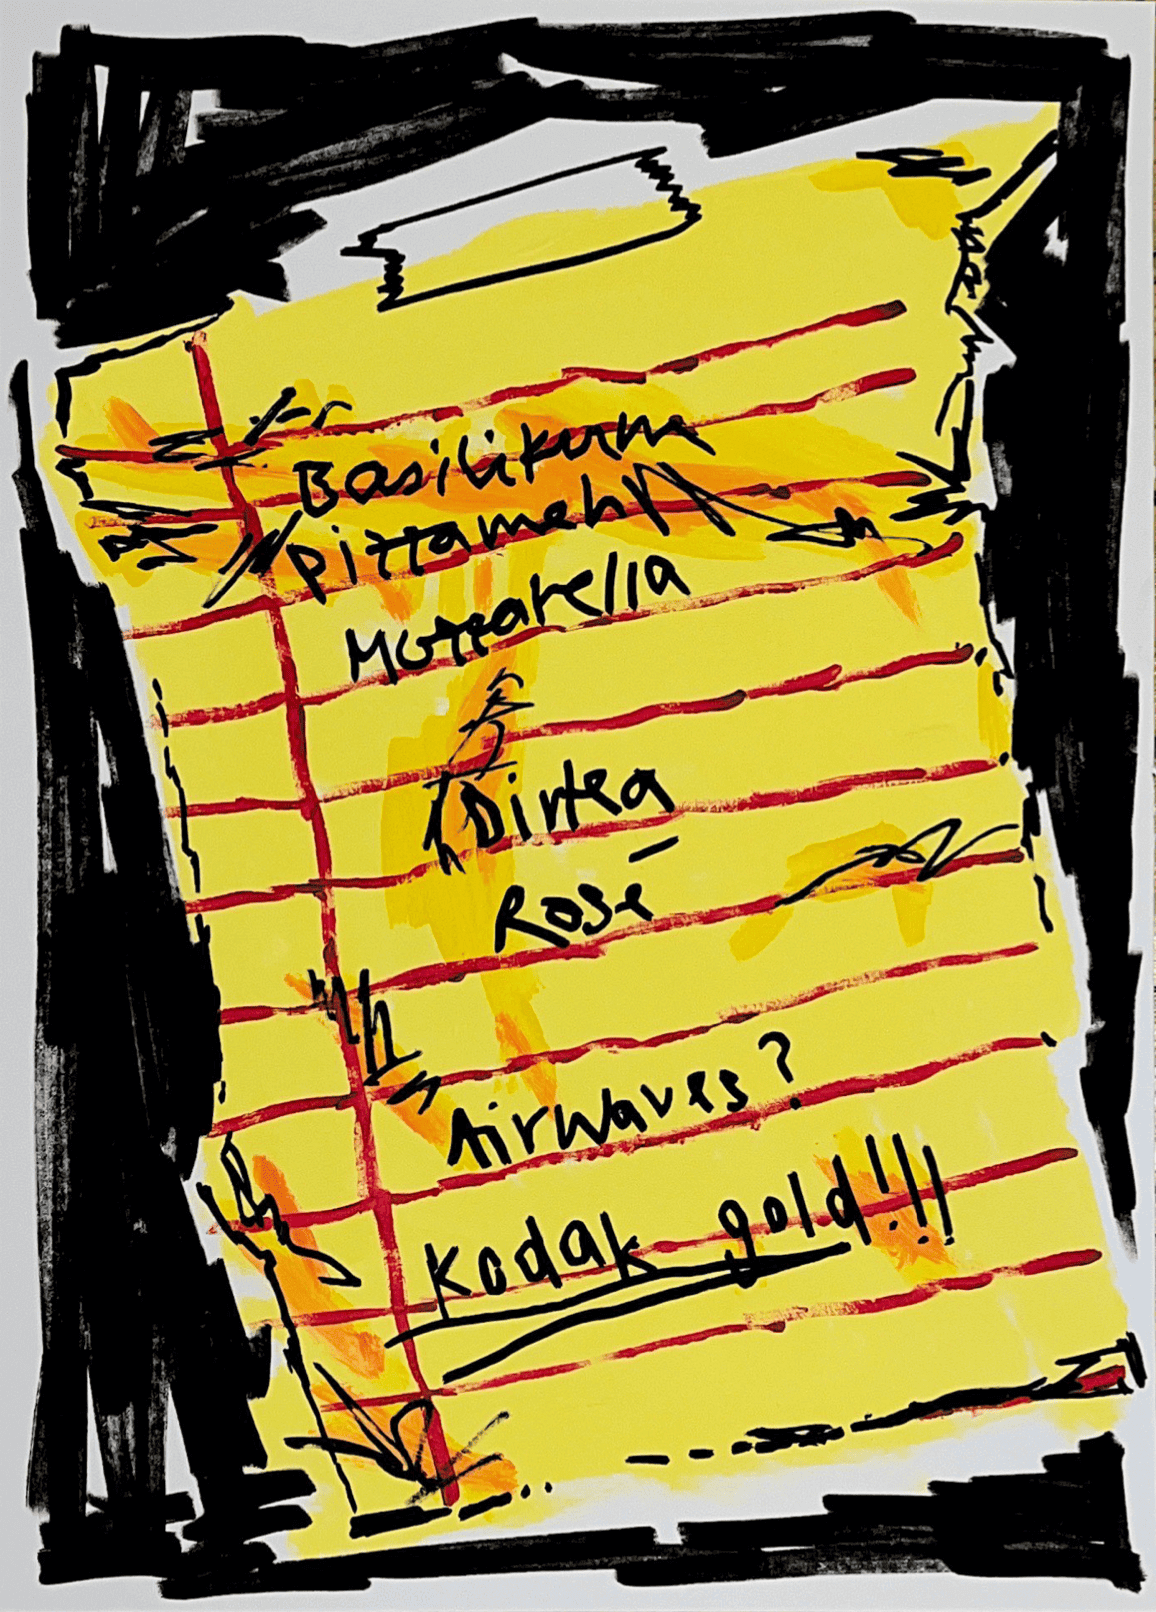 Basilikum
Pizzamehl
Mozzarella
Dirtea
Rosé
Airwaves?
Kodak gold!!!